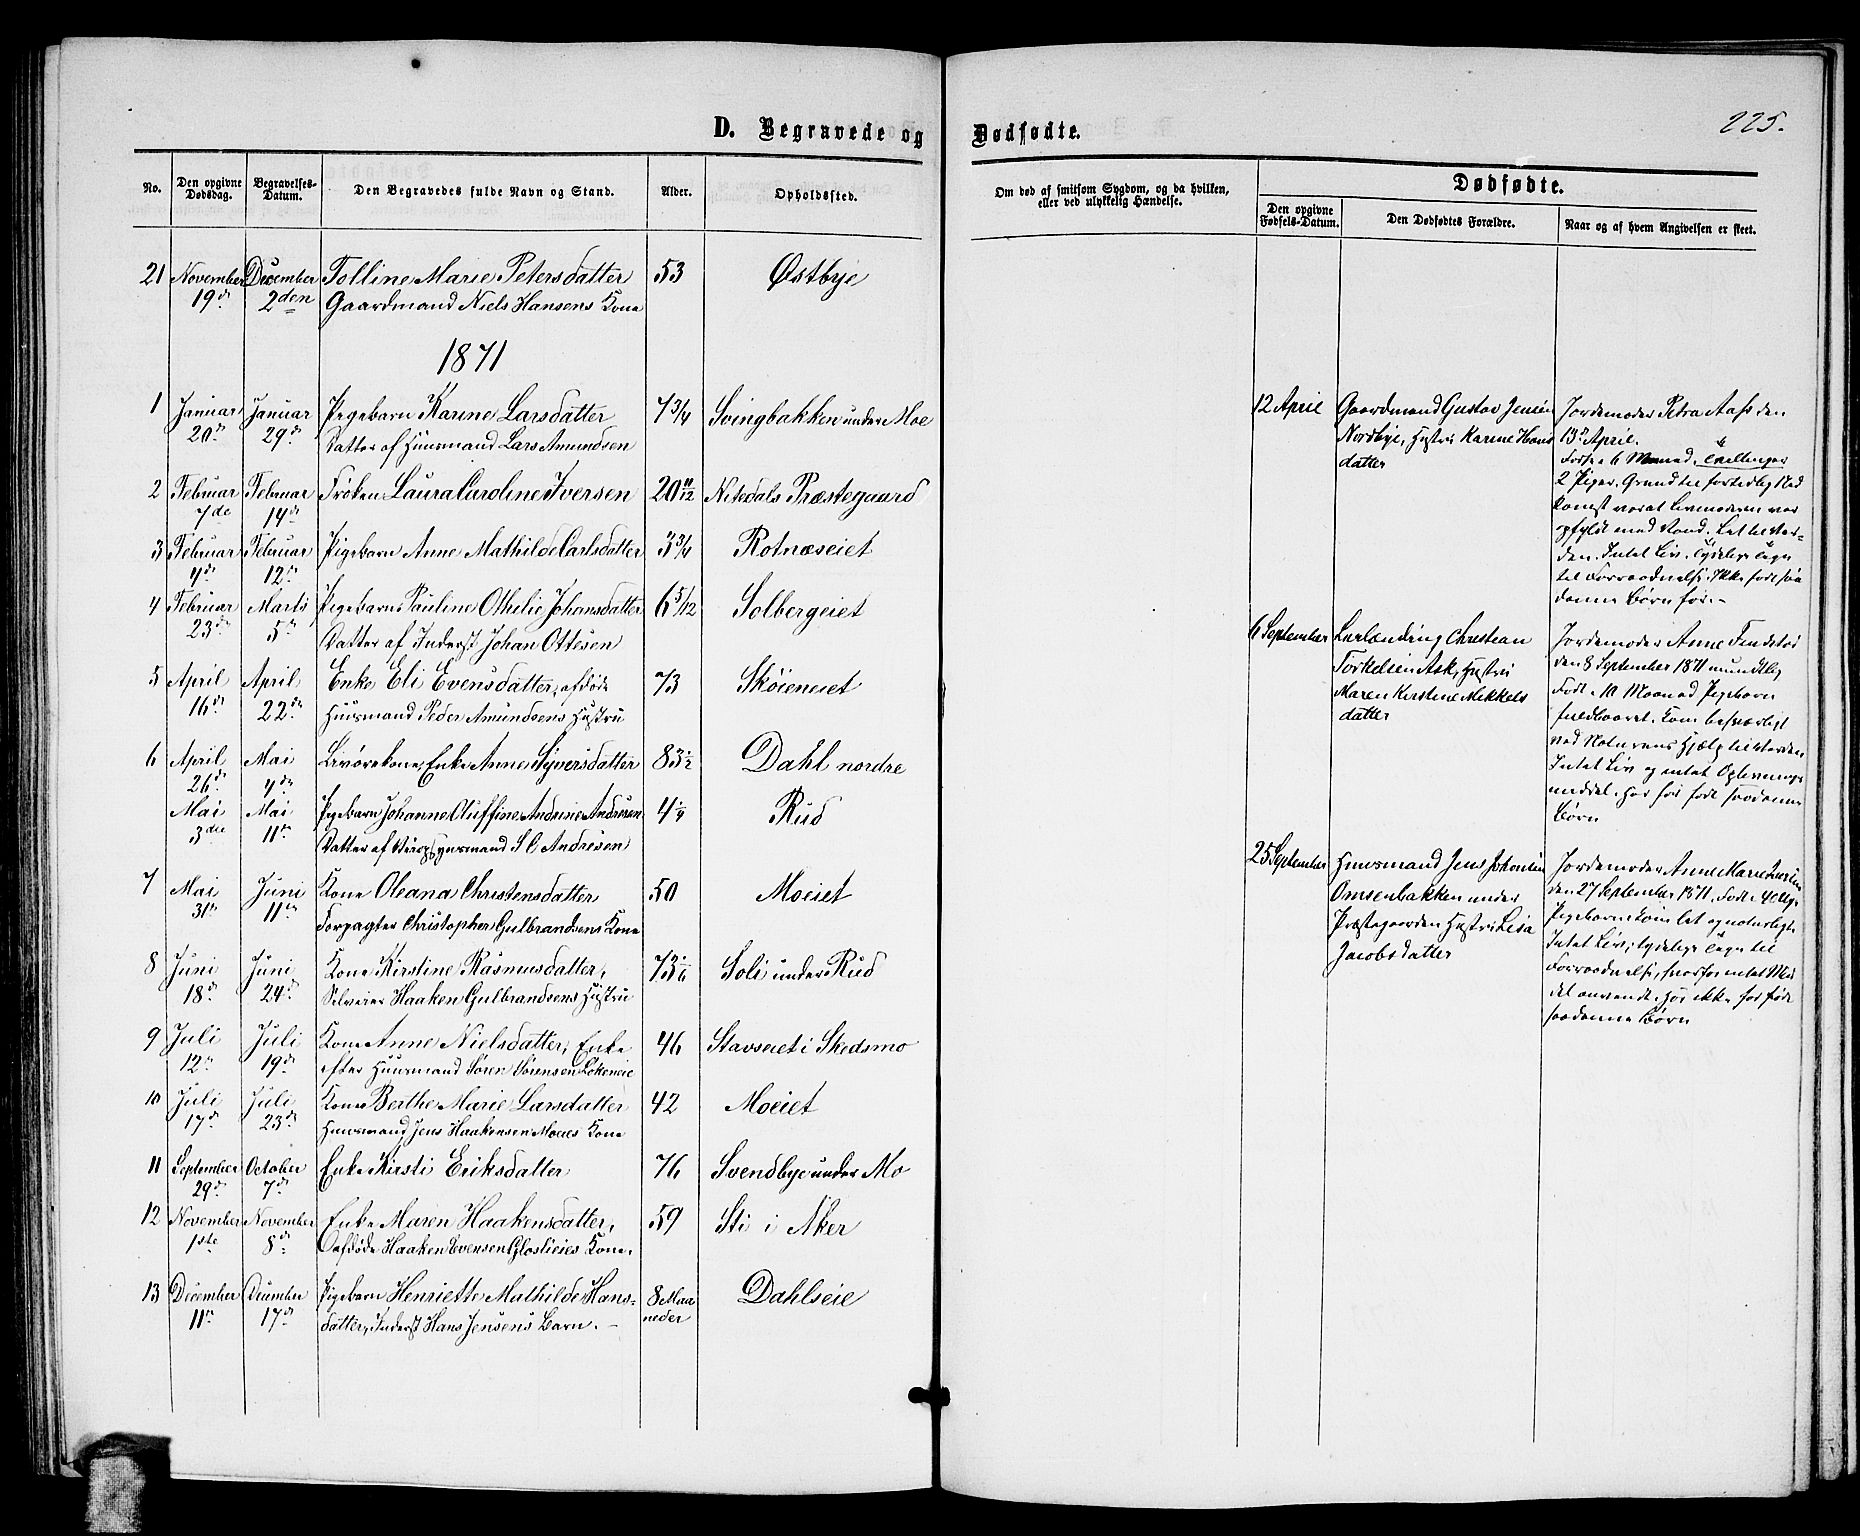 D. Begravede og Dødfødte.
225.
No.
Den opgivne Dødsdag.
Begravelses-Datum.
Den Begravedes fulde Navn og Stand.
Alder.
Opholdssted.
Om død af smitsom Sygdom, og da hvilken, eller ved ulykkelig Hændelse.
Dødfødte.
Den opgivne Fødsels-Datum.
Den Dødfødtes Forældre.
Naar og af hvem Angivelsen er skeet.
21 November December Tolline Marie Petersdatter 53 Østbye
19de 2den Gaardmand Niels Hansens Kone
1871
1 Januar Januar Pigebarn Karine Larsdatter 7 3/4 Svingbakken under Moe
20de 29de Datter af Huusmand Lars Amundsen
2 Februar Februar Frøken Laura Caroline Iversen 20 11/12 Nitedals Præstegaard
7de 14de
3 Februar Februar Pigebarn Anne Mathilde Carlsdatter 3 3/4 Rotnæseiet
4de 12te
4 Februar Marts Pigebarn Pauline Othelie Johansdatter 6 5/12 Solbergeiet
23de 5te Datter af Inderst Johan Ottesen
5 April April Enke Eli Evensdatter, afdøde 73 Skøieneiet
16de 22de Huusmand Peder Amundsens Hustru
6 April Mai Livørekone, Enke Anne Syversdatter 83 1/2 Dahl nordre
26de 4de
Mai Mai Pigebarn Johanne Oluffine Andrine Andresen 4 1/4 Rud
3die 11te Datter af Huusmand S O Andresen
7 Mai Juni Kone Oleana Christensdatter 50 Moeiet
31te 11te Forpagter Christopher Gulbrandsens Kone
8 Juni Juni Kone Kirstine Rasmusdatter, 73 1/6 Soli under Rud
18de 24de Selveier Haaken Gulbrandsens Hustru
9 Juli Juli Kone Anne Nielsdatter, Enke 46 Stavseiet i Skedsmo
12te 19de efter Huusmand Søren Sørensen Løkeneie
10 Juli Juli Kone Berthe Marie Larsdatter 42 Moeiet
17de 23de Huusmand Jens Haakensen Moeies Kone
11 September October Enke Kirsti Eriksdatter 76 Svendbye under Mo
29de 7de
12 November November Enke Maren Haakensdatter, 59 Sti i Aker
1ste 8de afdøde Haaken Evensen Glostieies Kone.
13 December December Pigebarn Henriette Mathilde Hans- 8 Maa Dahlseie
11te 17de datter, Inderst Hans Jensens Barn. neder
12 April Gaardmand Gustav Jensen Jordemoder Petra Aas den
Nordbye, Hustru Karine Hans 13de April.
datter Født 6 Maaned. Tvillinger
2 Piger. Grund til fortidlig Ned
komst været Livmoderen var
opfyldt med Vand. Let
den. Intet Liv. Tydelige Tegn
til Forraadnelse. Ikke født saa
danne Børn før.
6 September Lærlending Christian Jordemoder Anne
Torkelsen Ask, Hustru den 8 September 1871 mundtlig
Maren Kirstine Mikkels Født 10 Maaned Pigebarn
datter fuldbaaret. Kom besværligt
ved Naturens Hjælp til Verden
Intet Liv og intet Oplivnings
middel. Har før født saadanne
Børn
25 September Huusmand Jens Johansen Jordemoder Anne Marie
Omsenbakken under den 27 September 1871. Født 40 Uge
Præstegaarden Hustru Lisa Pigebarn. Kom let og naturligt
Jacobsdatter Intet Liv, tydelige Tegn til
Forraadnelse, hvorfor intet Mid
del anvendt. Har ikke før født
saadanne Børn